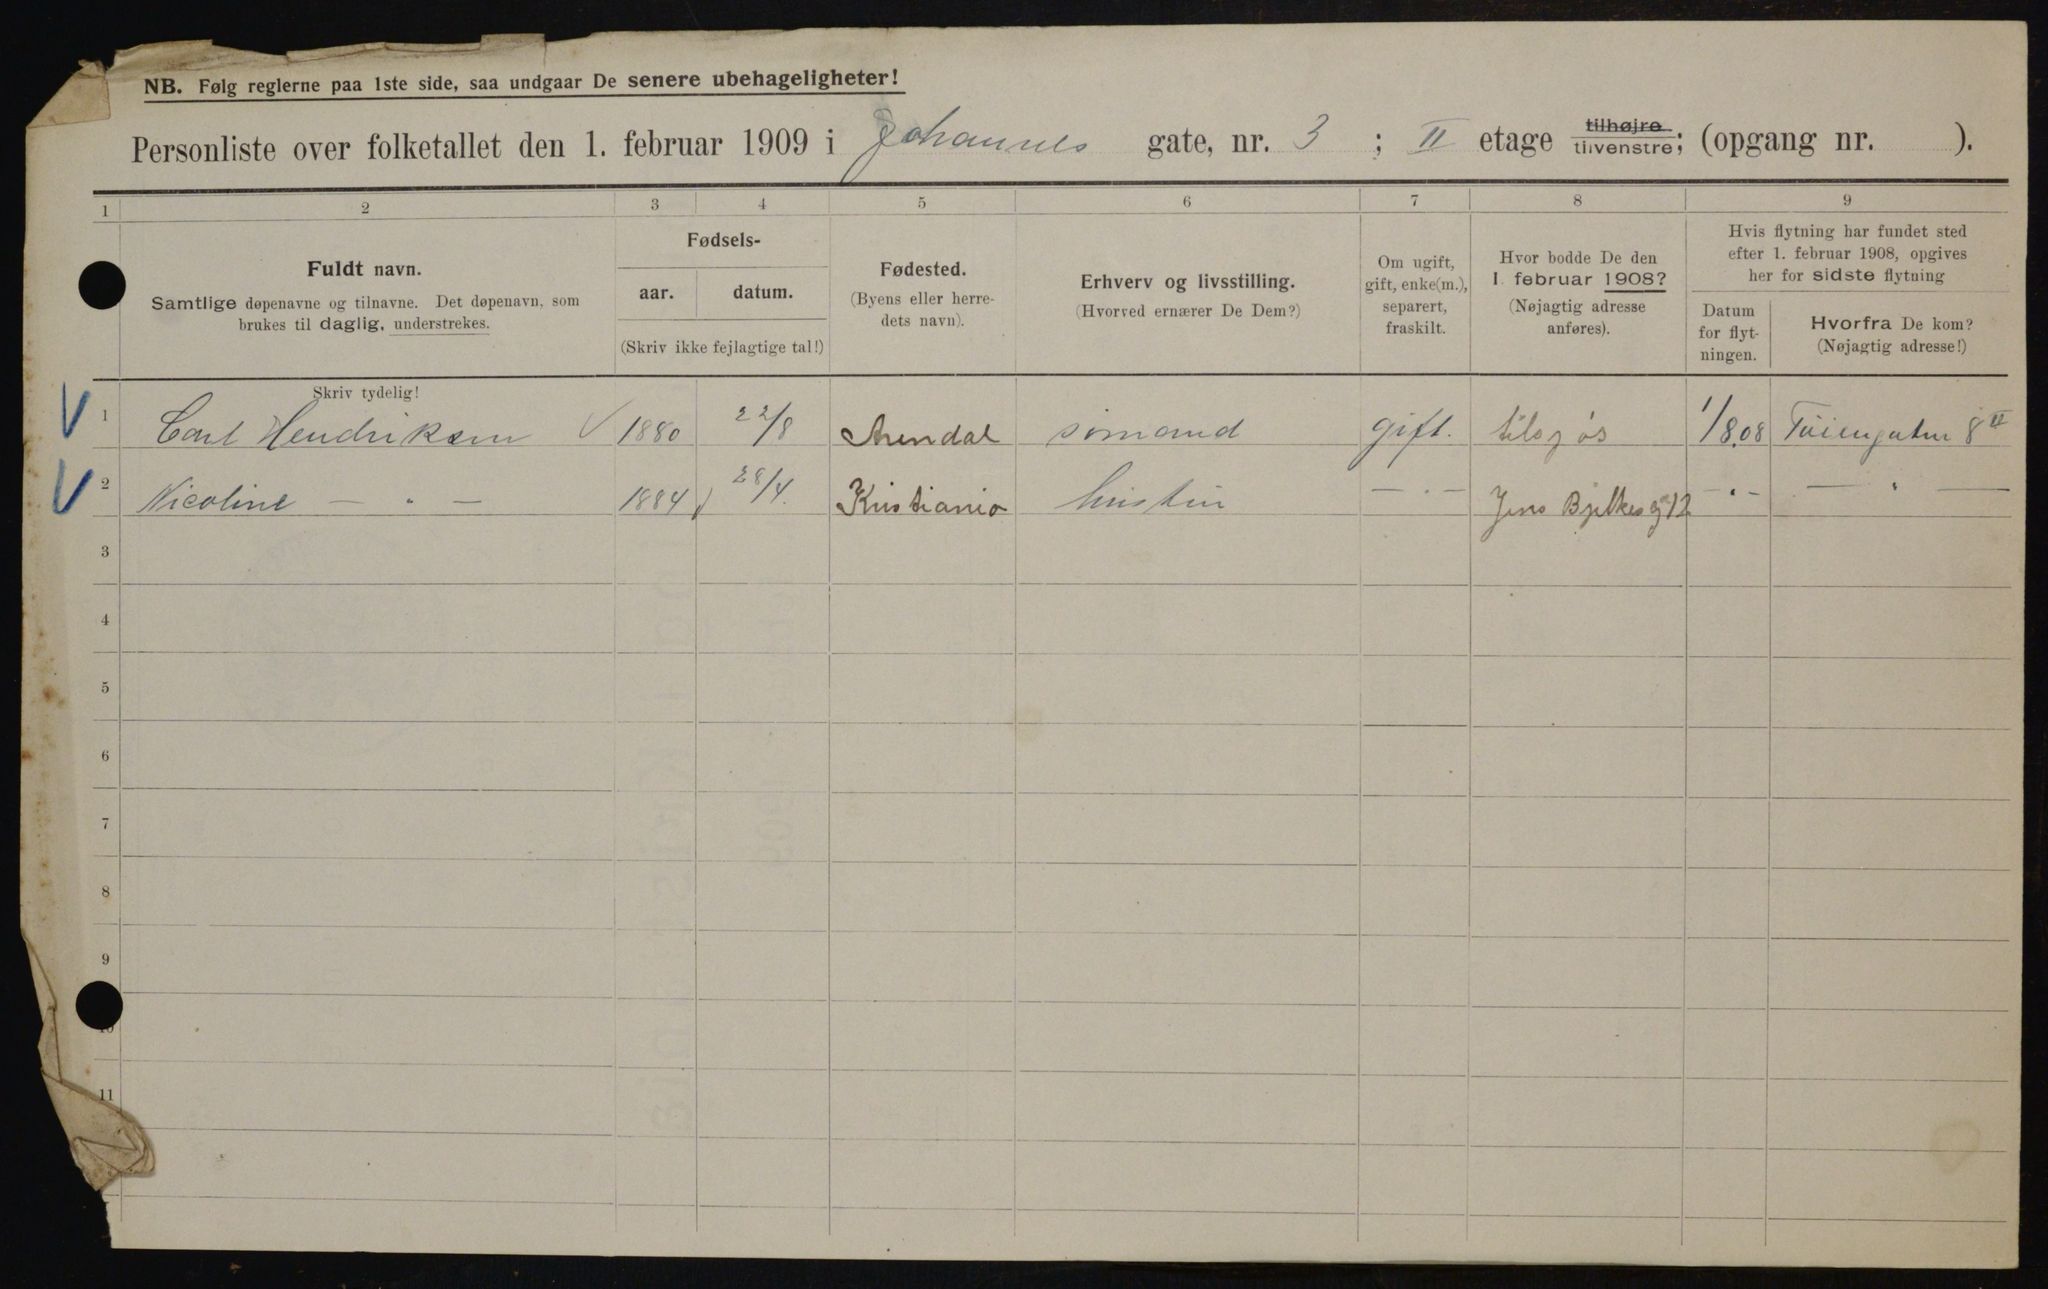 NB. Følg reglerne paa 1ste side, saa undgaar De senere ubehageligheter!
Personliste over folketallet den 1. februar 1909 i Johannes gate, nr. 3 ; II etage tilhøjre tilvenstre; (opgang nr. ).
1 2 3 4 5 6 7 8 9
Fuldt navn.
Samtlige døpenavne og tilnavne. Det døpenavn, som
brukes til daglig, understrekes.
Fødsels-
aar. datum.
(Skriv ikke fejlagtige tal!)
Fødested.
(Byens eller herre-
dets navn).
Erhverv og livsstilling.
(Hvorved ernærer De Dem?)
Om ugift,
gift, enke(m.),
separert,
fraskilt.
Hvor bodde De den
1. februar 1908?
(Nøjagtig adresse
anføres).
Hvis flytning har fundet sted
efter 1. februar 1908, opgives
her for sidste flytning
Datum
for flyt-
ningen.
Hvorfra De kom?
(Nøjagtig adresse!)
Skriv tydelig!
V 1 Carl Hendriksen 1880 22/8 Arendal sømand gift. tilsjøs 1/8.08 Tøiengaten 8 II
V 2 Nicoline — " — 1884 28/4. Kristiania hustru — " — Jens Bjelkesg 12 - " - — " —
3
4
5
6
7
8
9
10
11